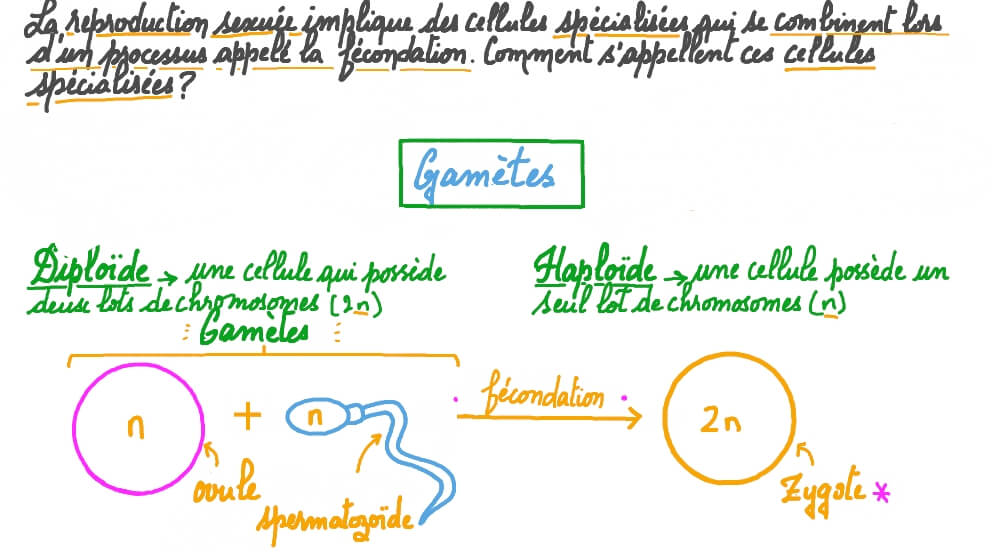 La reproduction sexuée implique des cellules spécialisées qui se combinent lors
d'un processus appelé la fécondation. Comment s'appellent ces cellules
spécialisées?
Gamètes
Diploïde → une cellule qui possède
deux lots de chromosomes (2n)
Haploïde → une cellule possède un
seul lot de chromosomes (n)
Gamètes
n + n fécondation 2n
ovule
spermatozoïde
Zygote *